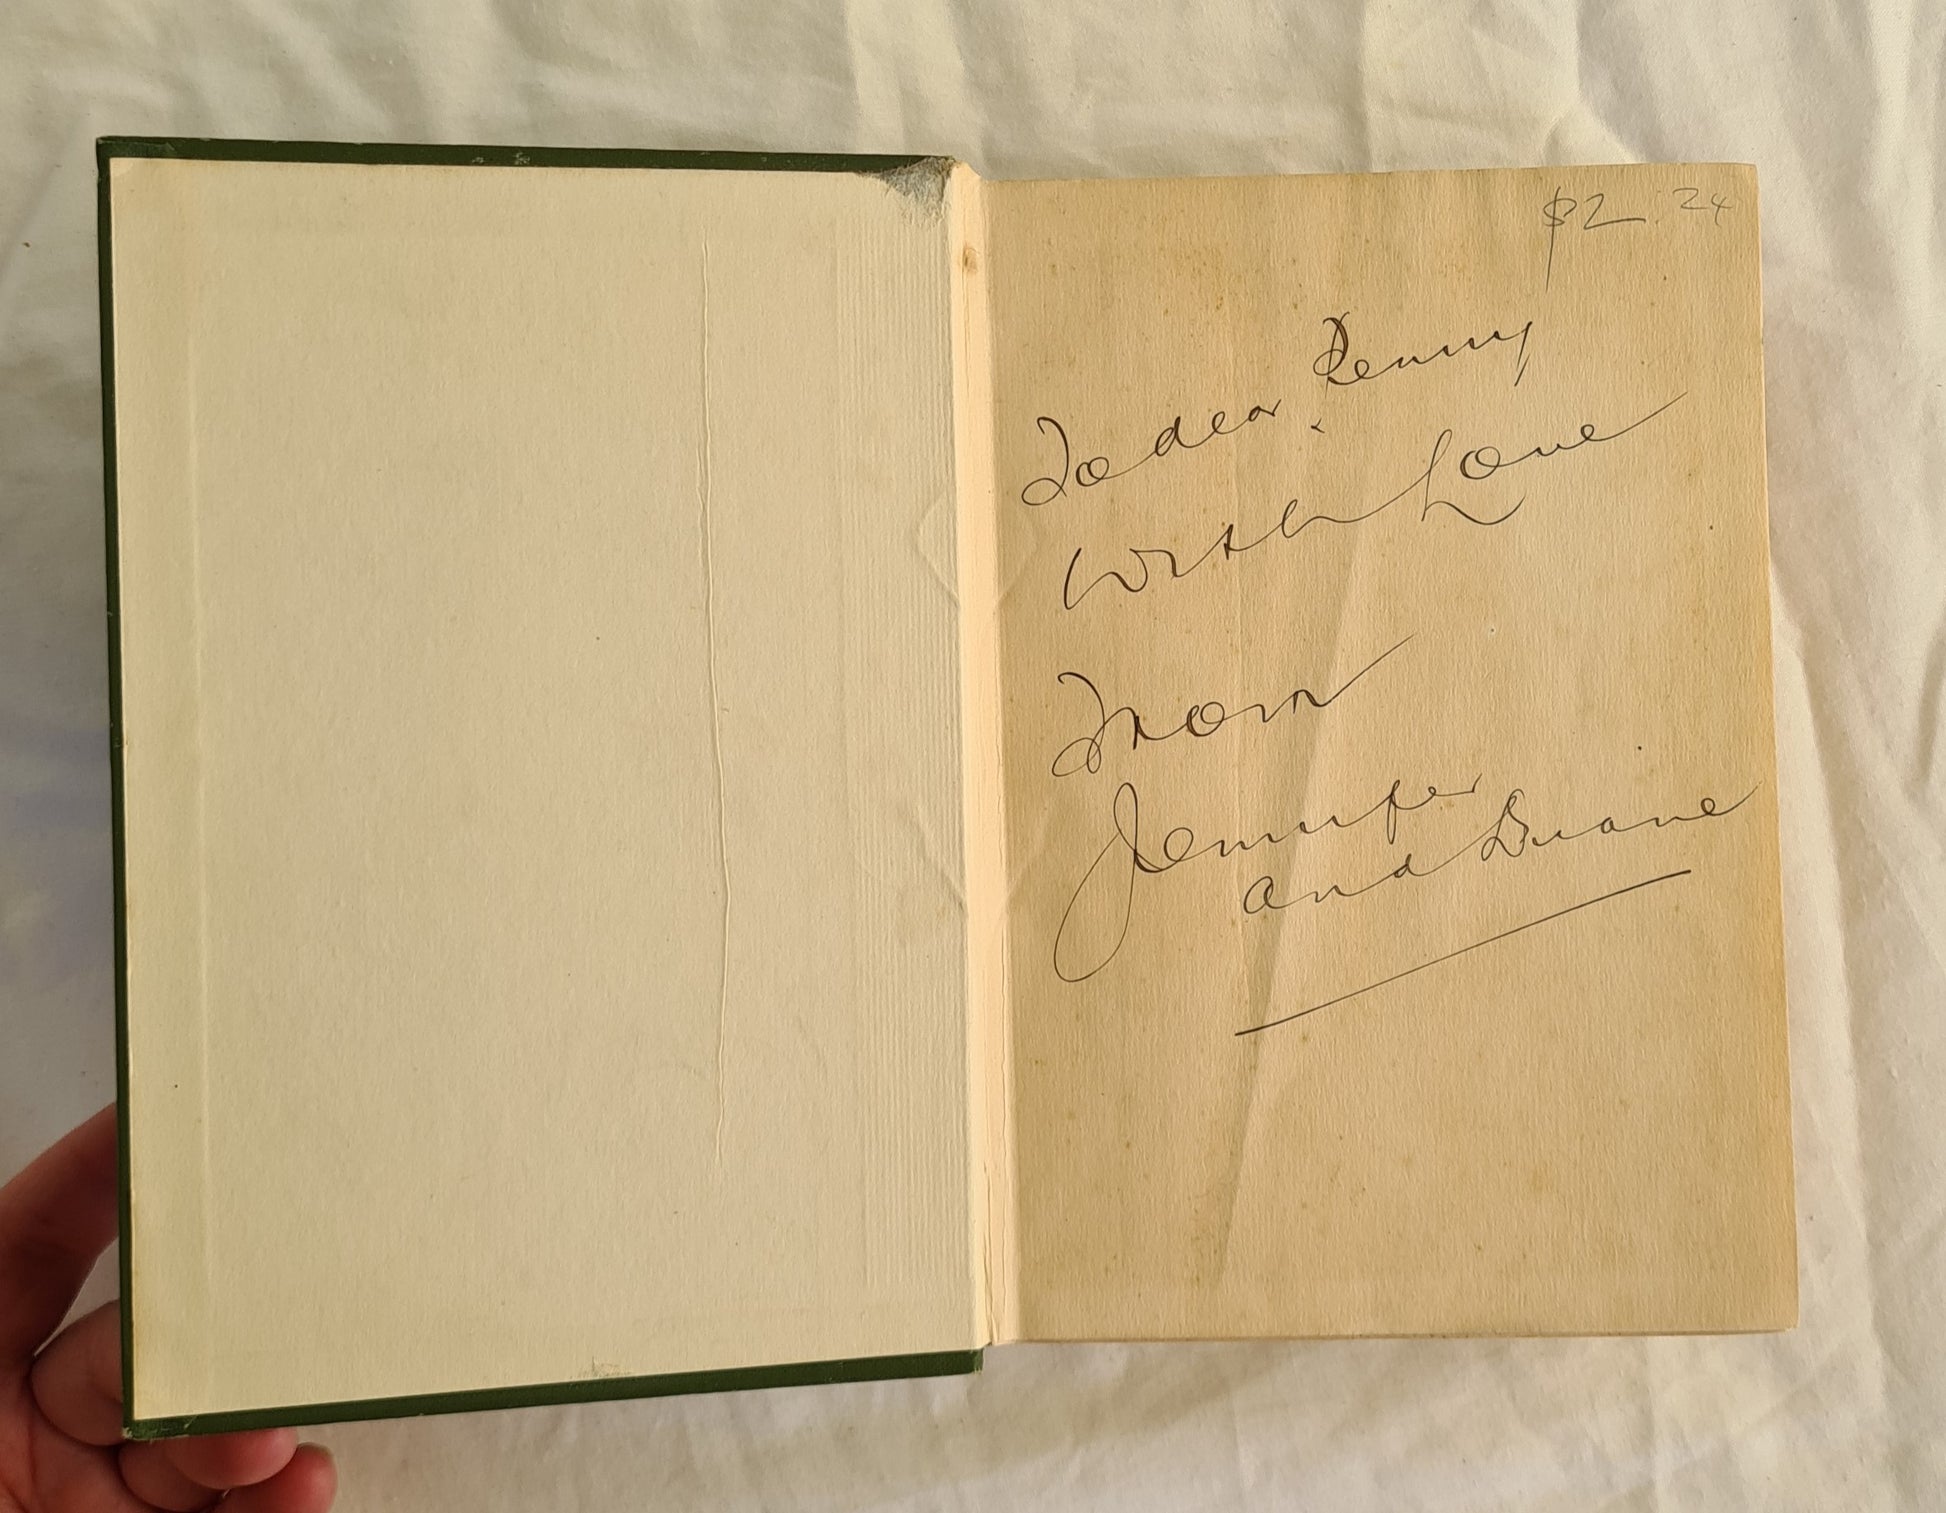 $2.24
To dear Penny
With Love
From
Jennifer
and Duane